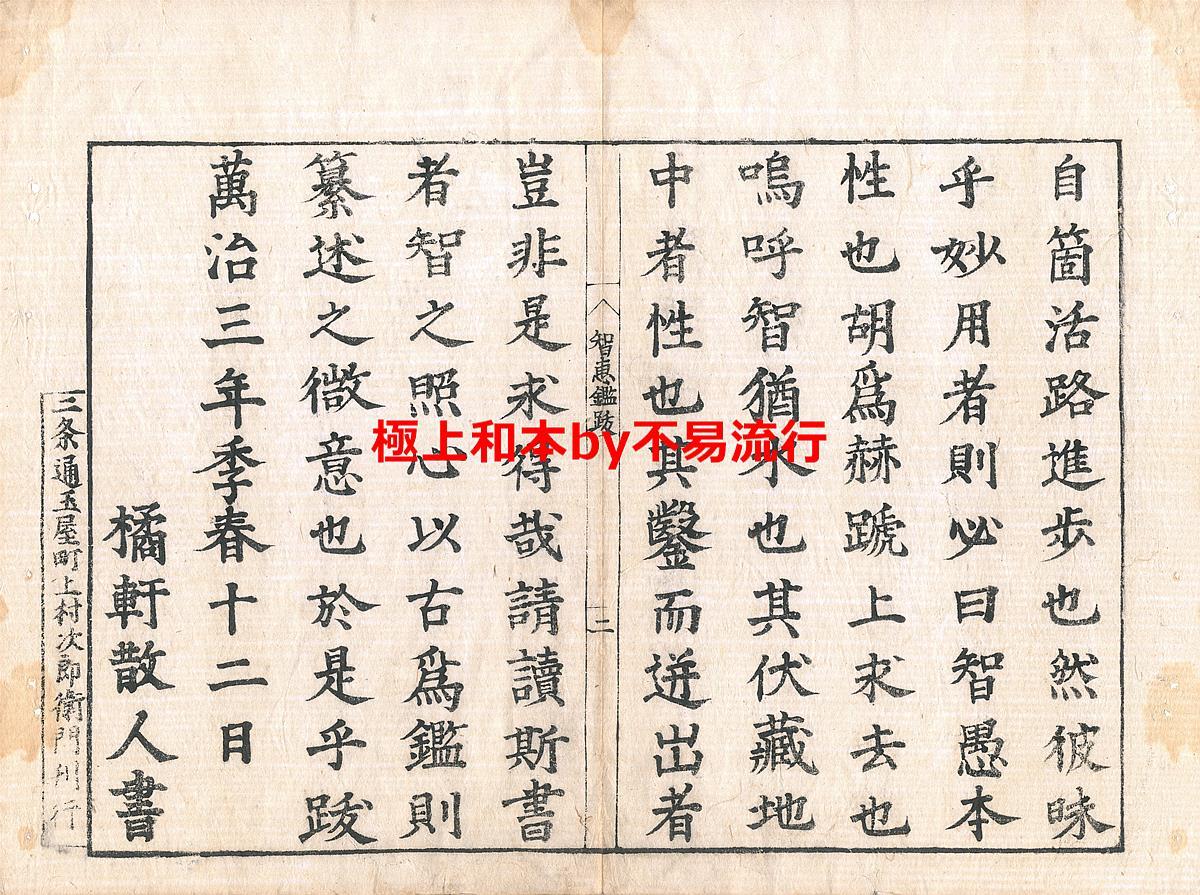 自箇活路進歩也然彼昧
乎妙用者則必曰智愚本
性也胡爲赫蹏上求去也
嗚呼智猶水也其伏藏地
中者性也其鑿而迸出者
智惠鑑跋
二
豈非是求得哉請讀斯書
者智之照心以古爲鑑則
纂述之微意也於是乎跋
萬治三年季春十二日
橘軒散人書
三条通玉屋町上村次郎衛門刋行
極上和本by不易流行